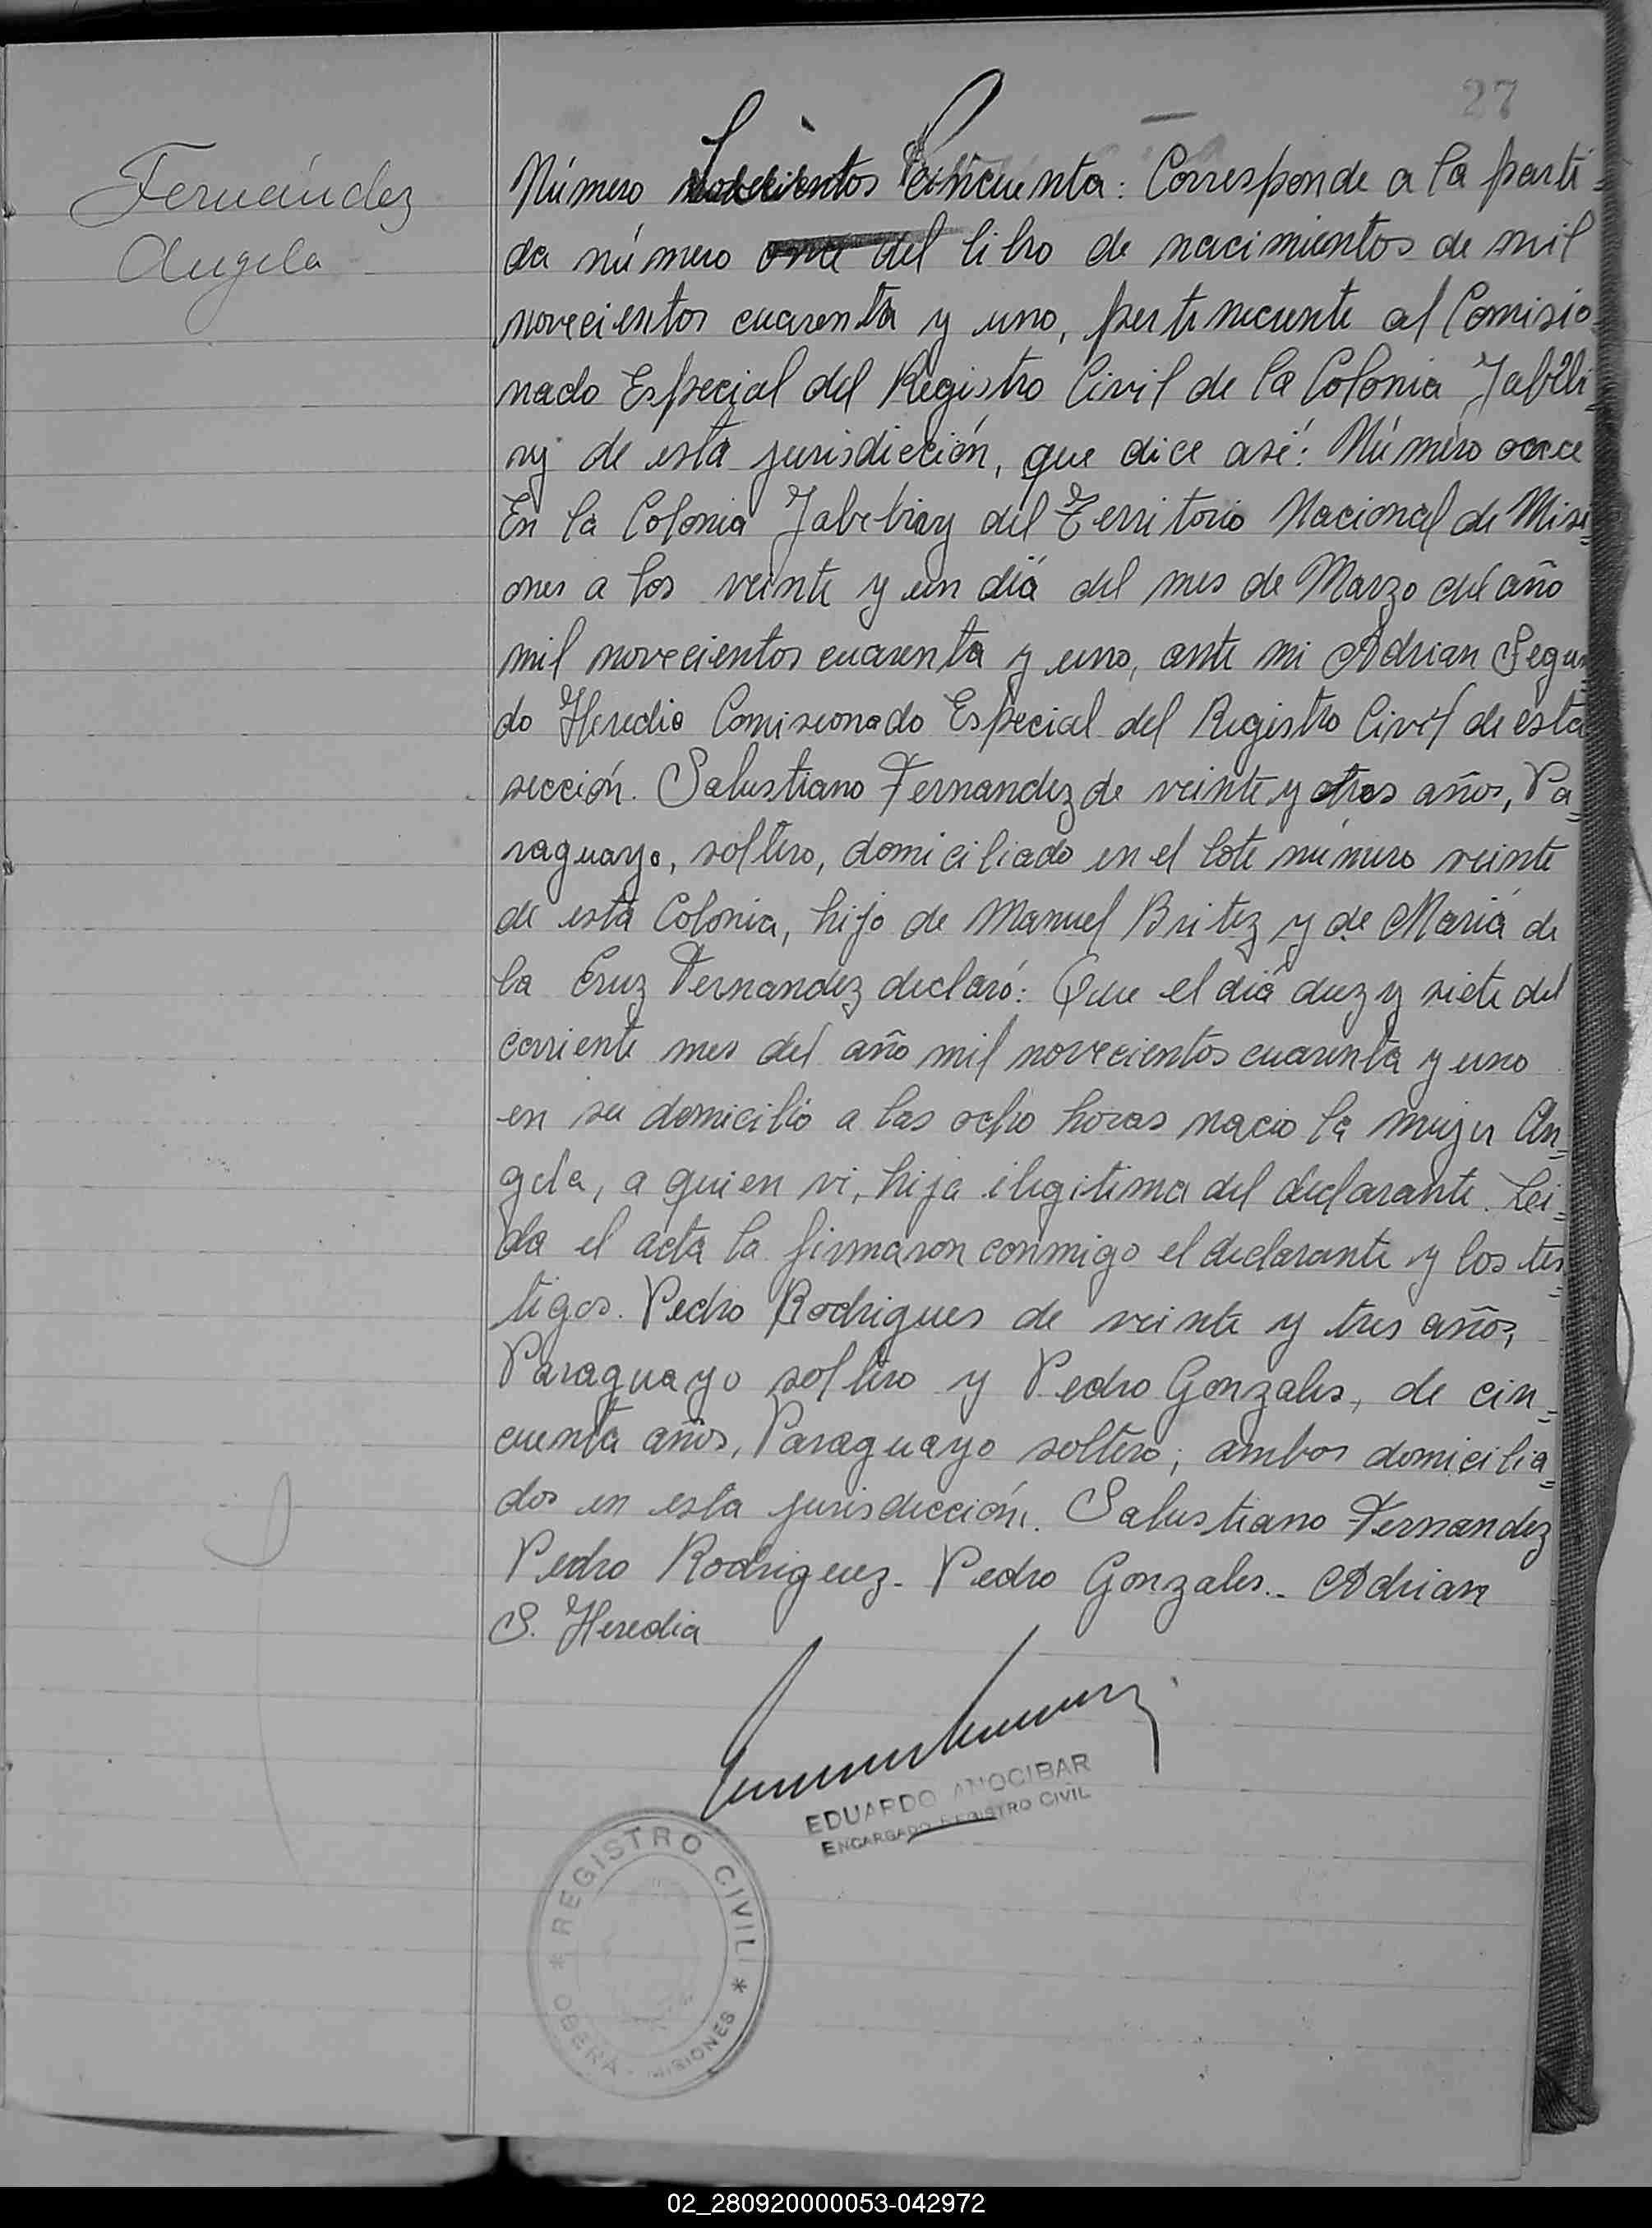 27
Fernández
Angela
Número cincuenta: Corresponde a la parti=
da número once del libro de nacimientos de mil
novecientos cuarenta y uno, perteneciente al Comisio=
nado Especial del Registro Civil de la Colonia Jabebi=
ry de esta jurisdicción, que dice asi: Número once
En la Colonia Jabebiry del Territorio Nacional de Misi=
ones a los veinte y un día del mes de Marzo del año
mil novecientos cuarenta y uno, ante mi Adrian Segun=
do Heredia Comisionado Especial del Registro Civil de esta
sección. Salustiano Fernandez de veinte y tres años, Pa=
raguayo, soltero, domiciliado en el lote número veinte
de esta Colonia, hijo de Manuel Britez y de María de
la Cruz Fernandez declaró: Que el día diez y siete del
corriente mes del año mil novecientos cuarenta y uno
en su domicilio a las ocho horas nacio la mujer An=
gela, a quien vi, hija ilegitima del declarante. Lei=
da el acta la firmaron conmigo el declarante y los tes=
tigos. Pedro Rodrigues de veinte y tres años,
Paraguayo soltero y Pedro Gonzales, de cin=
cuenta años, Paraguayo soltero; ambos domicilia=
dos en esta jurisdicción. Salustiano Fernandez
Pedro Rodriguez- Pedro Gonzales.- Adrian
S. Heredia
EDUARDO ANOCIBAR
ENCARGADO REGISTRO CIVIL
* REGISTRO CIVIL *
OBERA - MISIONES
02_280920000053-042972